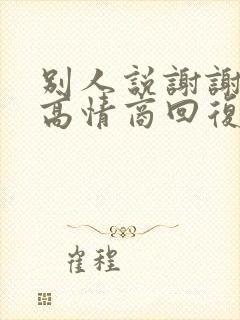 别人説謝謝
高情商回復
崔程